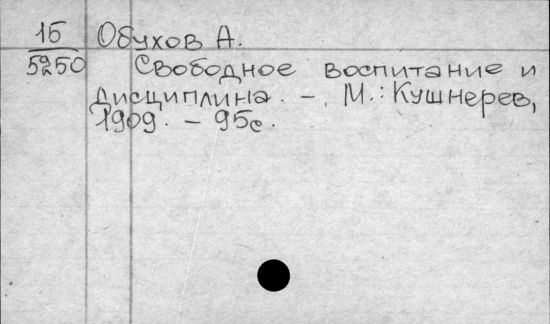 15 Обухов А.
5250 Свободное воспитание и
дисциплина. –, М.: Кушнерев,
1909. – 95с.